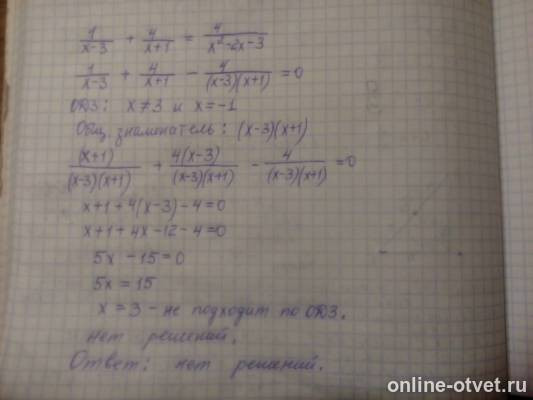 1/(x-3) + 4/(x+1) = 4/(x²-2x-3)
1/(x-3) + 4/(x+1) - 4/((x-3)(x+1)) = 0
ОДЗ: x≠3 и x=-1
Общ. знаменатель: (x-3)(x+1)
(x+1)/((x-3)(x+1)) + 4(x-3)/((x-3)(x+1)) - 4/((x-3)(x+1)) = 0
x+1+4(x-3)-4=0
x+1+4x-12-4=0
5x-15=0
5x=15
x=3 - не подходит по ОДЗ.
нет решений.
Ответ: нет решений.
online-otvet.ru